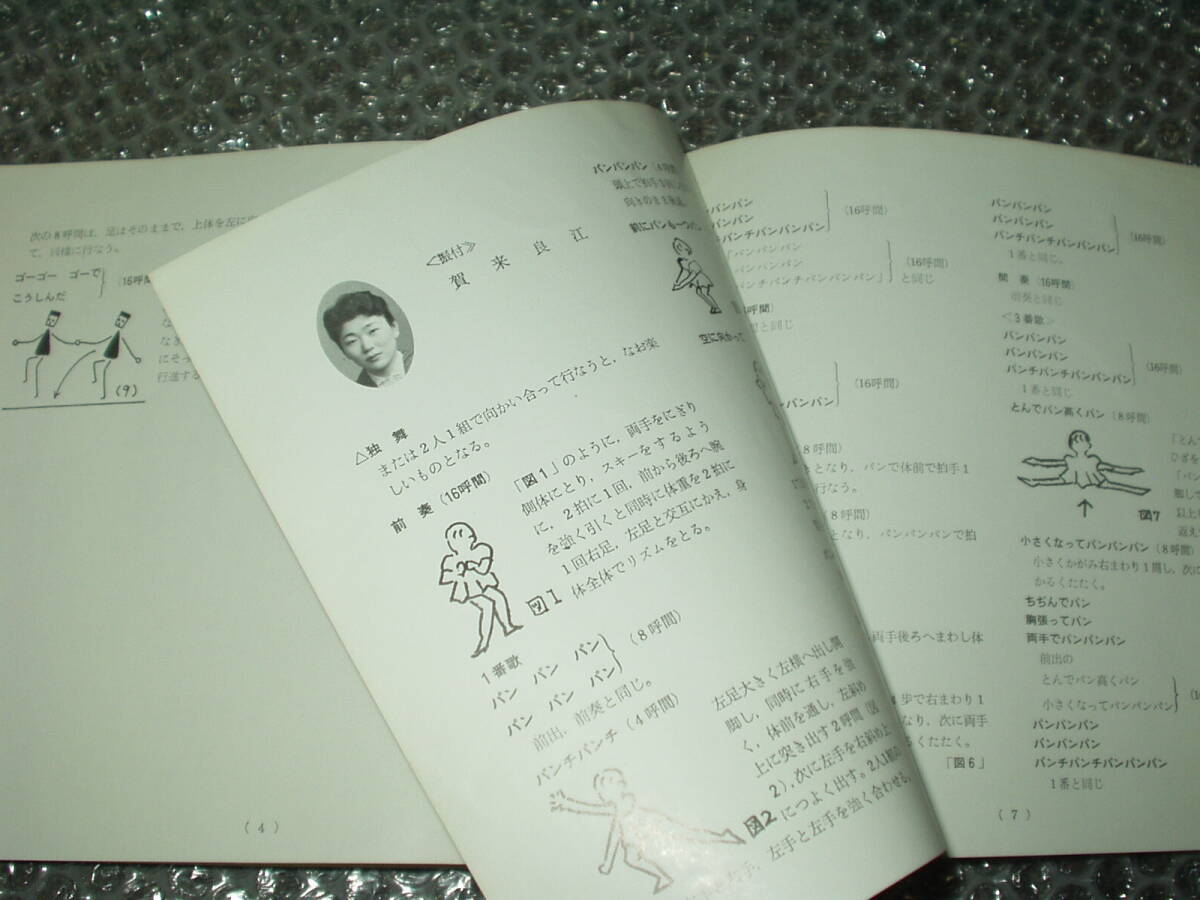 次の8呼間は、足はそのままで、上体を左に
て、同様に行なう。
ゴーゴー ゴーで
こうしんだ
(16呼間)
にそっ
行進する
(9)
(4)
≪振付≫
賀来良江
△独舞
または2人1組で向かい合って行なうと、なお楽
しいものとなる。
前奏(16呼間)
「図1」のように、両手をにぎり
側体にとり、スキーをするよう
に、2拍に1回、前から後ろへ腕
を強く引くと同時に体重を2拍に
1回右足、左足と交互にかえ、身
体全体でリズムをとる。
図1
1番歌
パン パン パン
パン パン パン
(8呼間)
前出、前奏と同じ。
パンチパンチ(4呼間)
左足大きく左横へ出し開
脚し、同時に右手を強
く、体前を通し、左斜め
上に突き出す2呼間(図
2)、次に左手を右斜め上
につよく出す。2人1組の
図2
左手と左手を強く合わせる。
パンパンパン(4呼間)
頭上で拍手3
向きのまま
前にパンも一つパン
空に向かって
パンパン
パンパン
パンチパンチパンパンパン
(16呼間)
「パンパンパン
パンパンパン
パンチパンチパンパンパン」
(16呼間)
と同じ
呼間)
と同じ
(16呼間)
ンパンパン
(8呼間)
となり、パンで体前で拍手1
行なう。
(8呼間)
となり、パンパンパンで拍
両手後ろへまわし体
歩で右まわり1
なり、次に両手
るくたたく。
「図6」
パンパンパン
パンパンパン
パンチパンチパンパンパン
(16呼間)
1番と同じ。
間奏(16呼間)
前奏と同じ
<3番歌>
パンパンパン
パンパンパン
パンチパンチパンパンパン
(16呼間)
1番と同じ
とんでパン高くパン(8呼間)
「とんで
ひざを
「パン
脚して
以上
返え
図7
小さくなってパンパンパン(8呼間)
小さくかがみ右まわり1周し、次に
かるくたたく。
ちぢんでパン
胸張ってパン
両手でパンパンパン
前出の
とんでパン高くパン
小さくなってパンパンパン
パンパンパン
パンパンパン
パンチパンチパンパンパン
1番と同じ
(7)